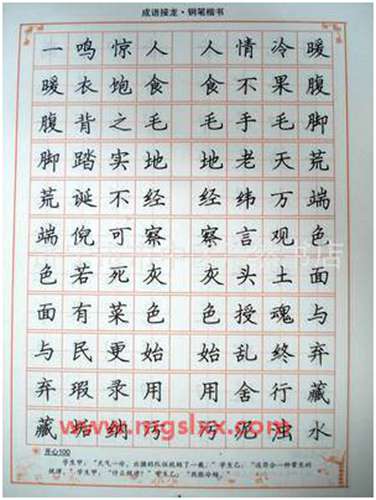 成语接龙·钢笔楷书
一鸣惊人 人情冷暖
暖衣饱食 食不果腹
腹背之毛 毛手毛脚
脚踏实地 地老天荒
荒诞不经 经纬万端
端倪可察 察言观色
色若死灰 灰头土面
面有菜色 色授魂与
与民更始 始乱终弃
弃瑕录用 用舍行藏
藏垢纳污 污泥浊水
www.mgslxx.com
开心100
学生甲："天气一冷，出操的队伍就短了一截。"学生乙："这符合一种常见的
规律。"学生甲："什么规律？"学生乙："热胀冷缩。"